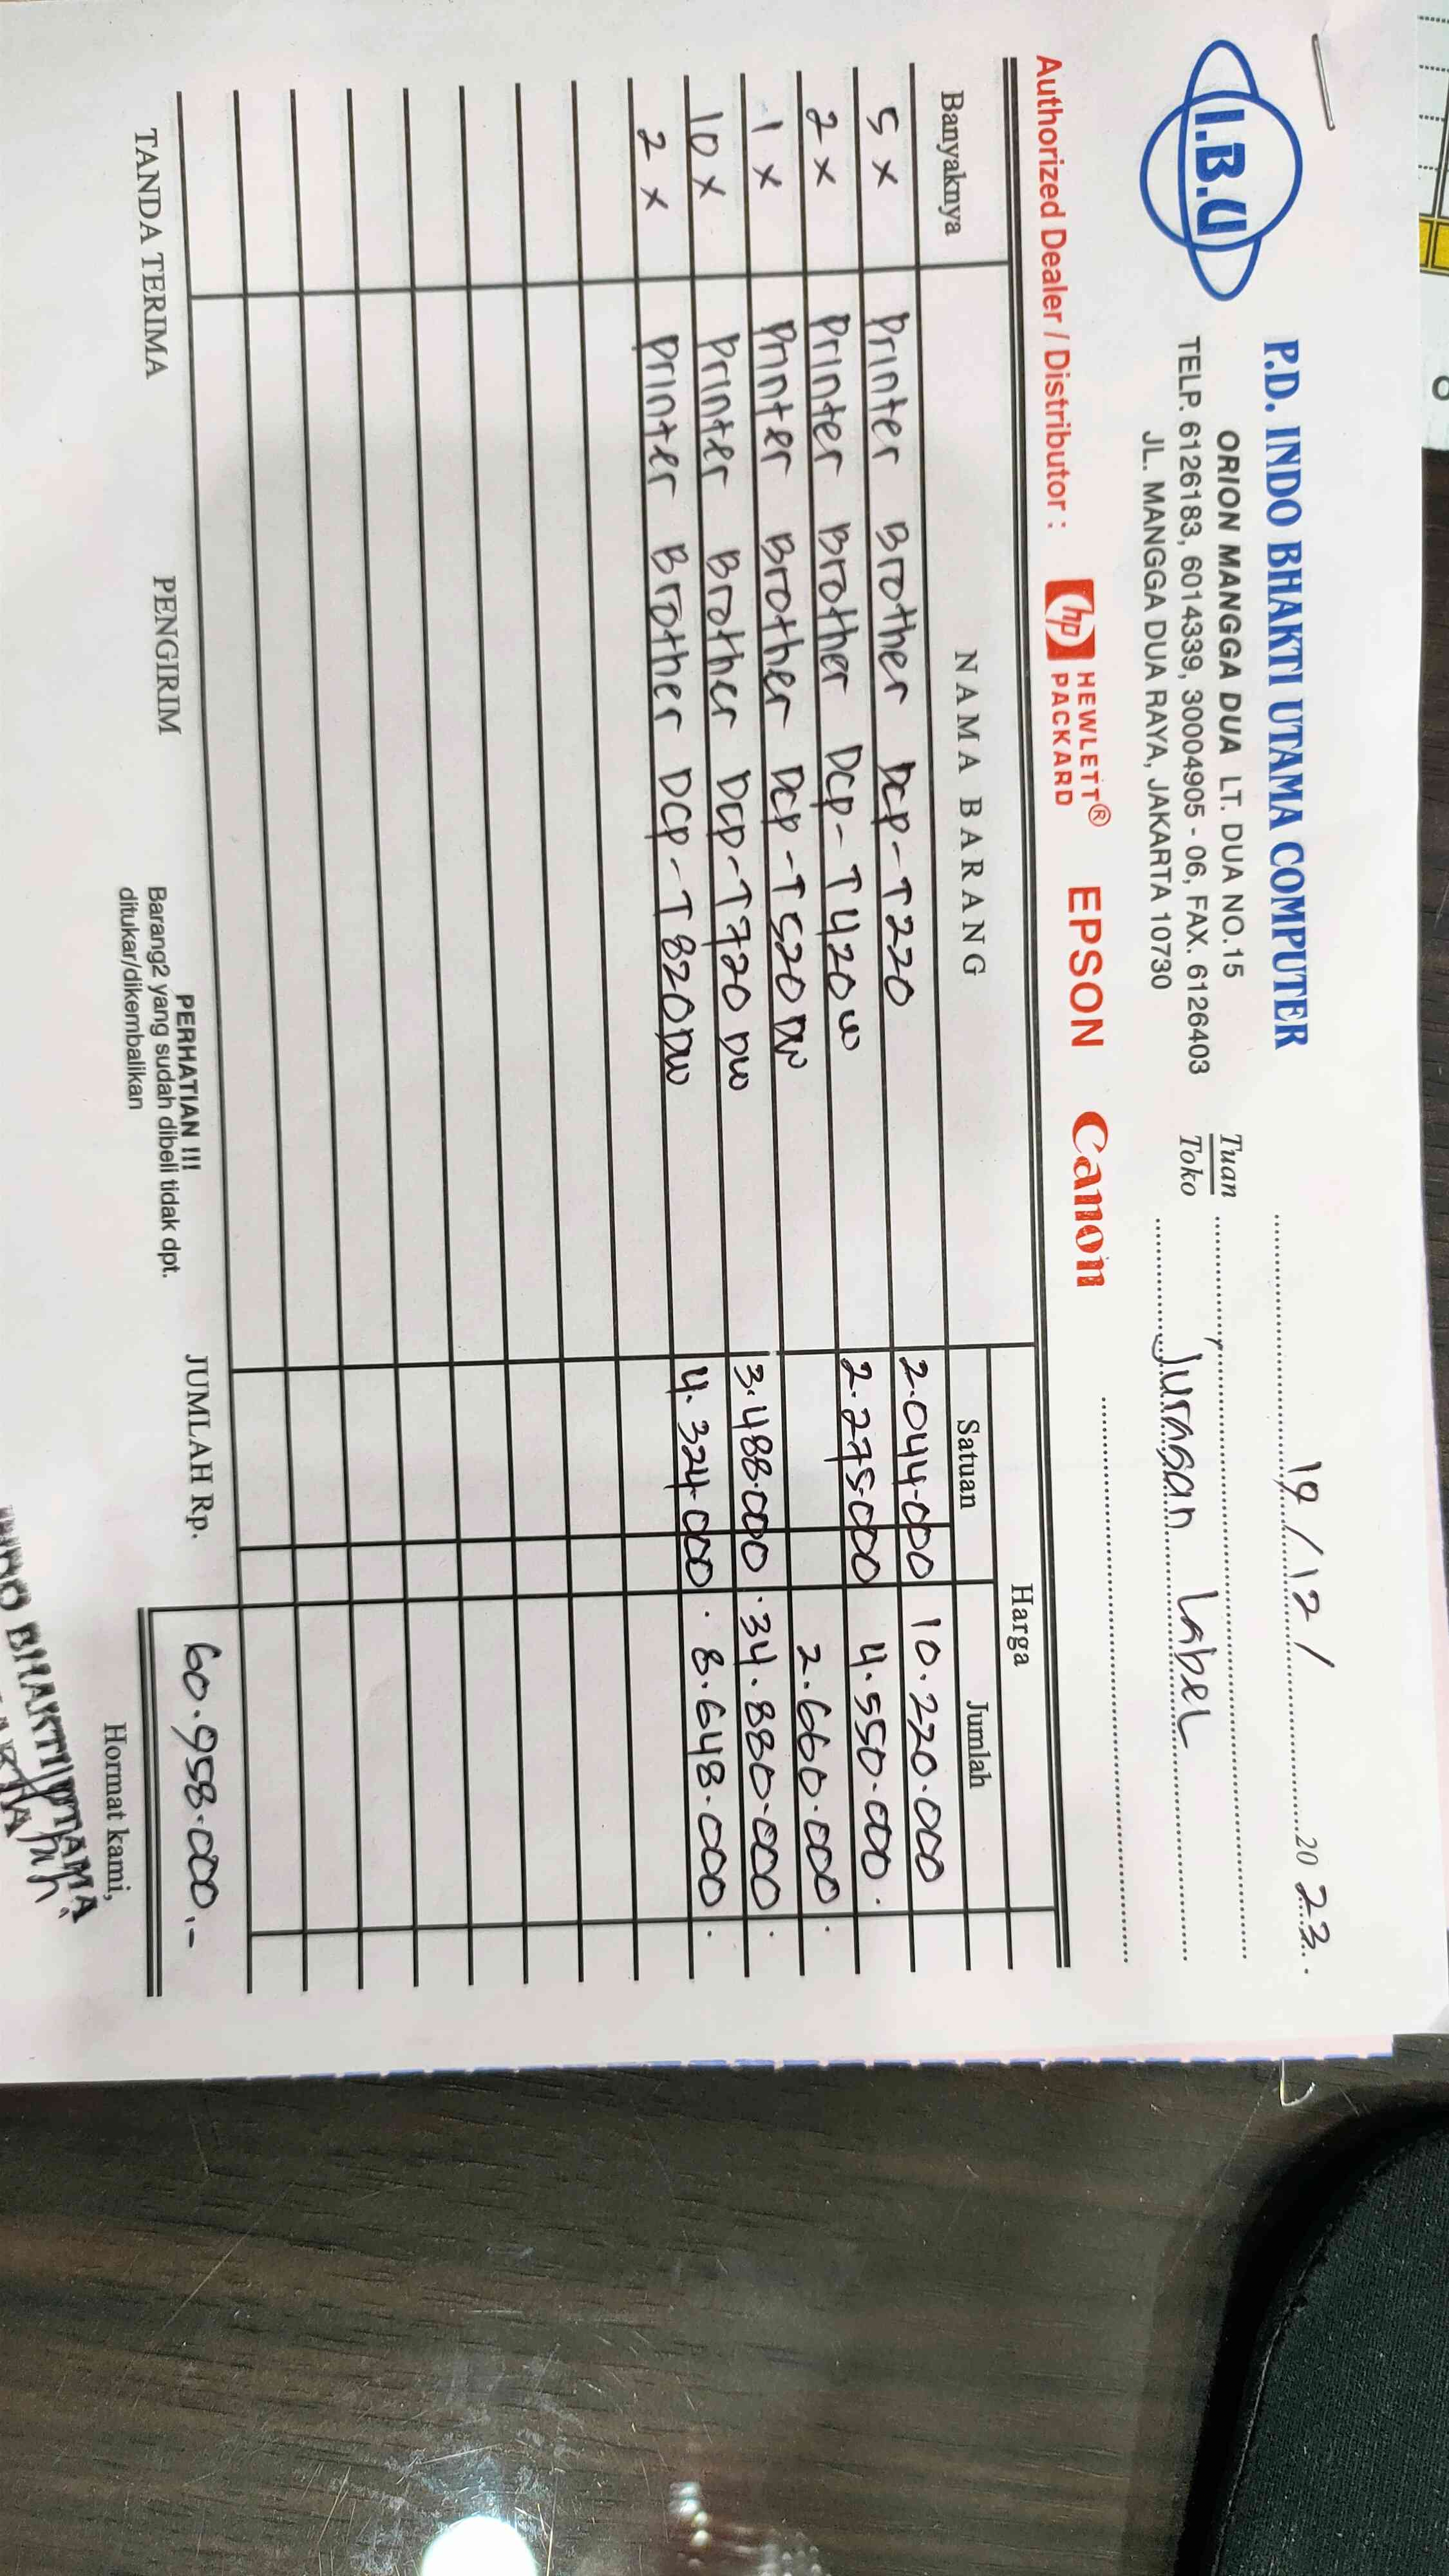 I.B.U
P.D. INDO BHAKTI UTAMA COMPUTER
ORION MANGGA DUA LT. DUA NO.15
TELP. 6126183, 6014339, 30004905 - 06, FAX. 6126403
JL. MANGGA DUA RAYA, JAKARTA 10730
19 / 12 / 20 23
Tuan
Toko Juragan Label
Authorized Dealer / Distributor : hp HEWLETT® PACKARD EPSON Canon
Banyaknya NAMA BARANG Harga
Satuan Jumlah
5 x Printer Brother DCP-T220 2.044.000 10.220.000
2 x Printer Brother DCP-T420W 2.275.000 4.550.000.
1 x Printer Brother DCP-T520DW 2.660.000.
10 x Printer Brother DCP-T720DW 3.488.000 34.880.000.
2 x Printer Brother DCP-T820DW 4.324.000 8.648.000.
TANDA TERIMA PENGIRIM JUMLAH Rp. 60.958.000,-
PERHATIAN !!!
Barang2 yang sudah dibeli tidak dpt.
ditukar/dikembalikan
Hormat kami,
BHAKTI UTAMA